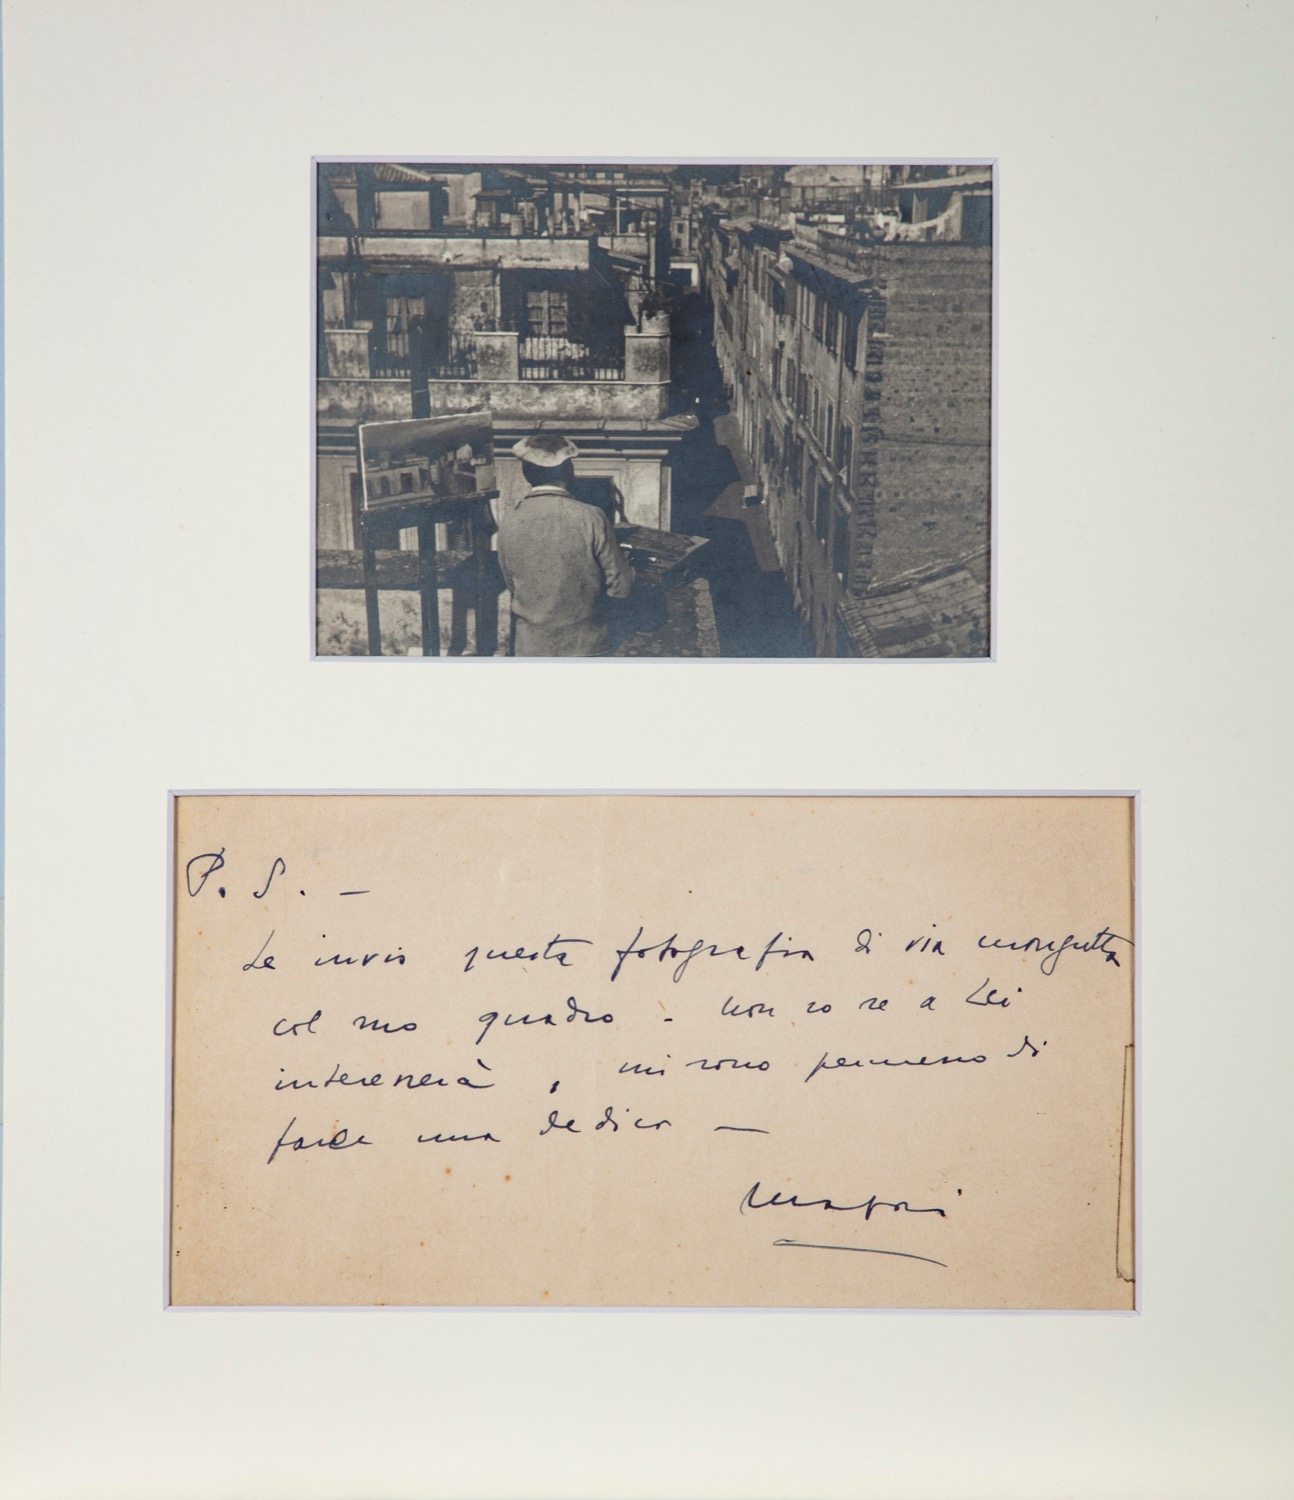 P. S. —
Le invio questa fotografia di via margutta
col mio quadro - non so se a Lei
interesserà, mi sono permesso di
farle una dedica —